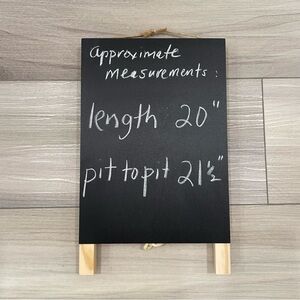 approximate
measurements:
length 20"
pit to pit 21½"